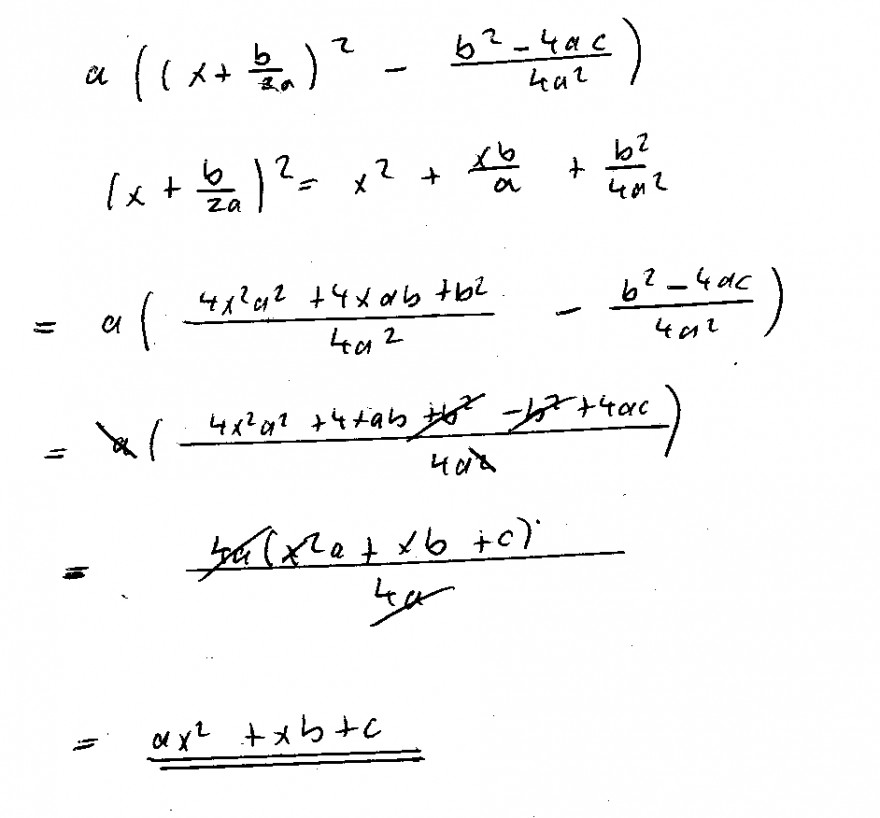 a ( ( x + b/2a )² - (b² - 4ac)/4a² )
( x + b/2a )² = x² + xb/a + b²/4a²
= a ( (4x²a² + 4xab + b²)/4a² - (b² - 4ac)/4a² )
= a ( (4x²a² + 4xab + b² - b² + 4ac)/4a² )
= 4a(x²a + xb + c)/4a
= ax² + xb + c